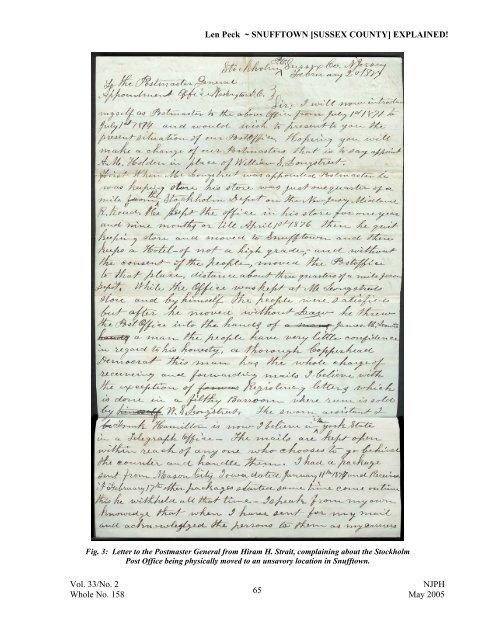 Len Peck ~ SNUFFTOWN [SUSSEX COUNTY] EXPLAINED!
Stockholm Sussex Co. N Jersey
February 20 1877
To the Postmaster General
Appointment Office Washington D.C.
Sir, I will now introduce
myself as Postmaster to the above Office from July 1st 1871 to
July 1st 1874 and would wish to present to you the
present situation of our Postoffice Hoping you will
make a change of our Postmasters that is to say appoint
A. M. Holden in place of William S. Longstreet.
First When Mr Longstreet was appointed Postmaster he
was keeping store his store was just one quarter of a
mile from the Stockholm Depot on the New Jersey Midland
R. Road, He kept the office in his store for one year
and nine months or till April 1st 1876 then he quit
keeping store and moved to Snufftown and there
keeps a Hotel of not a high grade, and without
the consent of the people, moved the Postoffice
to that place, distance about three quarters of a mile from
Depot. While the Office was kept at Mr Longstreets
store and by himself the people were satisfied
but after he moved without Leave he threw
the Post Office into the hands of James
a man the people have very little confidence
in regard to his honesty, a thorough Copperhead
Democrat this man has the whole charge of
receiving and forwarding mails I believe with
the exception of Registering letters which
is done in a filthy Barroom where rum is sold
by W. S. Longstreet. The sworn assistant I
Frank Hamilton is now I believe in York State
in a Telegraph Office - The mails are kept open
within reach of any one who chooses to go behind
the counter and handle them. I had a package
sent from Mason City Iowa dated January 11th 1877 and Received
it February 17th other packages started some time come on time
this he withheld all that time - I speak from my own
knowledge that when I have sent for my mail
and acknowledged the persons to them as my
Fig. 3: Letter to the Postmaster General from Hiram H. Strait, complaining about the Stockholm
Post Office being physically moved to an unsavory location in Snufftown.
Vol. 33/No. 2
Whole No. 158
65
NJPH
May 2005